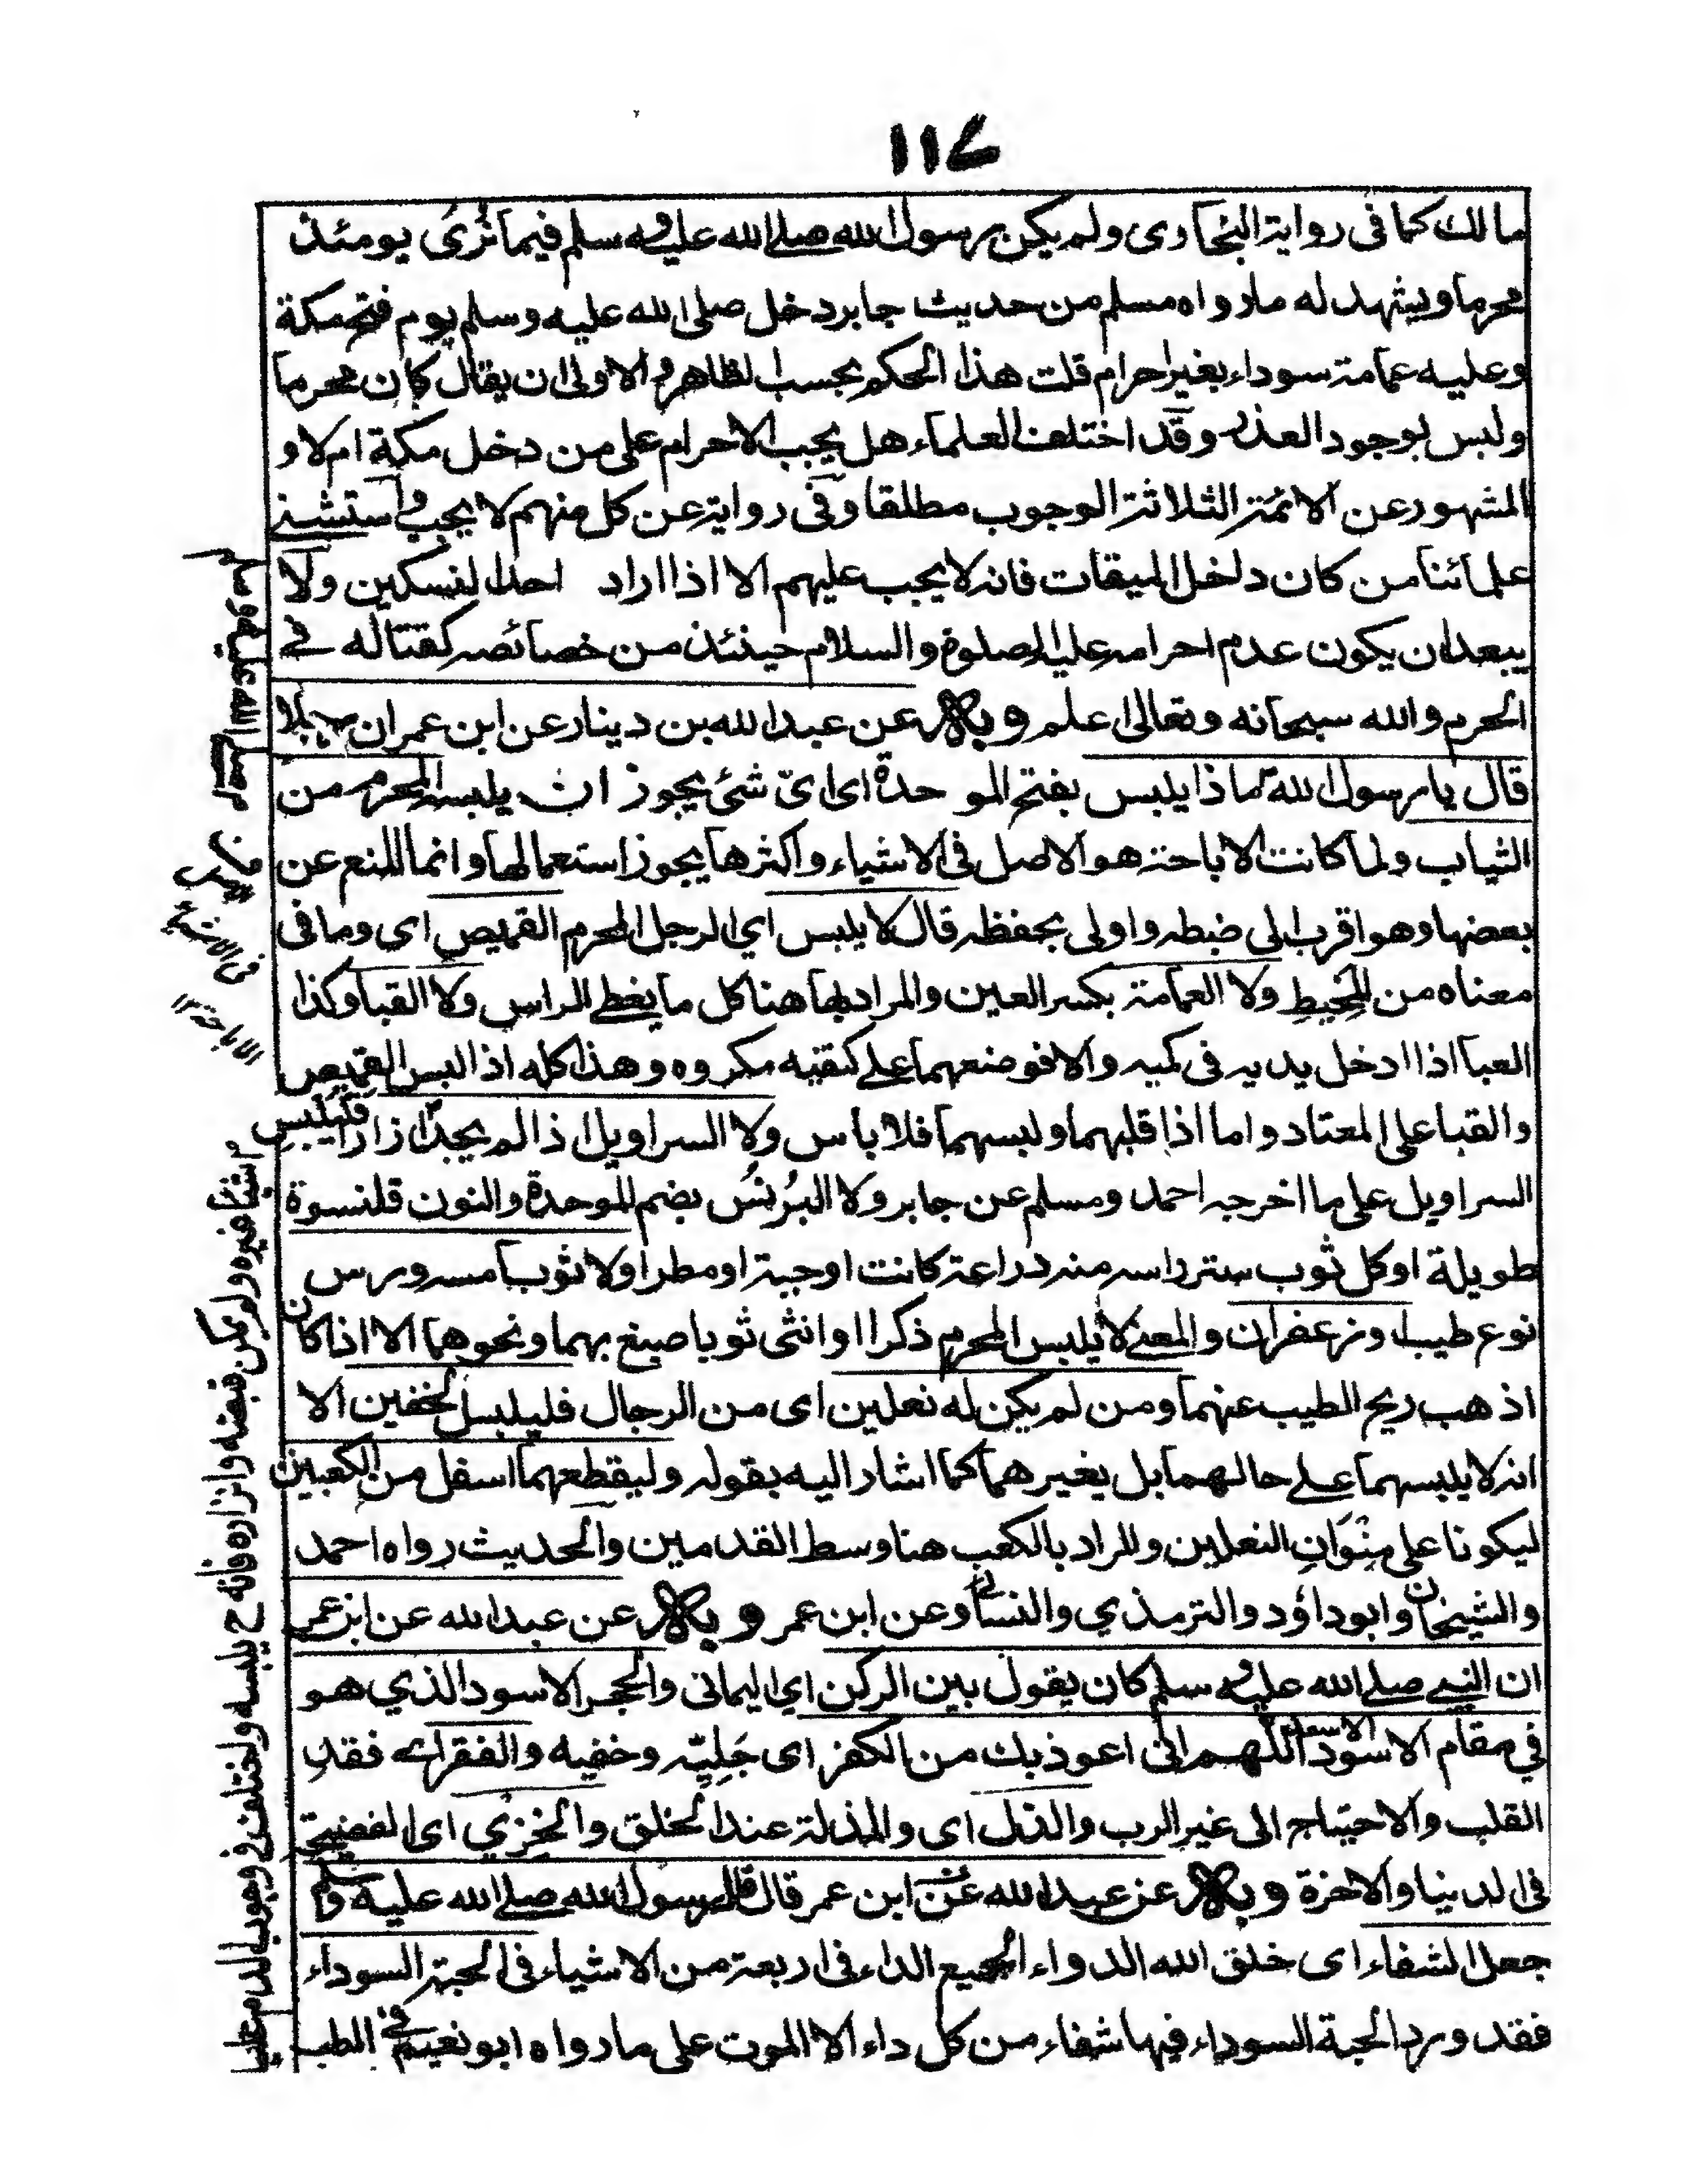 ١١٧
مالك كما فى رواية البخاوى ولم يكن رسول الله صلے الله عليه وسلم فيما نُرَى يومئذ
محرما ويشهد له مارواه مسلم من حديث جابر دخل صلى الله عليه وسلم يوم فتح مكة
وعليه عمامة سوداء بغير احرام قلت هذا الحكم بحسب الظاهر والاولى ان يقال كان محرما
ولبس بوجود العذر وقد اختلف العلماء هل يجب الاحرام على من دخل مكة ام لا و
المشهور عن الائمة الثلاثة الوجوب مطلقا وفى رواية عن كل منهم لا يجب واستثنے
علمائنا من كان داخل الميقات فانه لا يجب عليهم الا اذا اراد احد النسكين ولا
يبعد ان يكون عدم احرامه عليه الصلوة والسلام حينئذ من خصائصه كقتاله فے
الحرم والله سبحانه وتعالى اعلم وبه عن عبد الله بن دينار عن ابن عمر ان رجلا
قال يا رسول الله ماذا يلبس بفتح الموحدة اى اىّ شئ يجوز ان يلبسه المحرم من
الثياب ولما كانت الاباحة هو الاصل فى الاشياء واكثرها يجوز استعمالها وانما المنع عن
بعضها وهو اقرب الى ضبطه واولى بحفظه قال لا يلبس اي الرجل المحرم القميص اى وما فى
معناه من المخيط ولا العمامة بكسر العين والمراد بها هنا كل ما يغطے الراس ولا القبا وكذا
العبا اذا ادخل يديه فى كميه والا فوضعهما علے كتفيه مكروه وهذا كله اذا لبس القميص
والقبا على المعتاد واما اذا قلبهما ولبسهما فلا باس ولا السراويل اذا لم يجد ازارا فليلبس
السراويل على ما اخرجه احمد ومسلم عن جابر ولا البُرنُس بضم الموحدة والنون قلنسوة
طويلة او كل ثوب ستر راسه منه دراعة كانت او جبة او مطرا ولا ثوبا مسه ورس
نوع طيب او زعفران والمعنے لا يلبس المحرم ذكرا او انثى ثوبا صبغ بهما ونحوهما الا اذا كان
اذهب ريح الطيب عنهما ومن لم يكن له نعلين اى من الرجال فليلبس الخفين الا
انه لا يلبسهما علے حالهما بل يغيرهما كما اشار اليه بقوله وليقطعهما اسفل من الكعبين
ليكونا على منوان النعلين والمراد بالكعب هنا وسط القدمين والحديث رواه احمد
والشيخان وابو داؤد والترمذي والنسائى عن ابن عمر وبه عن عبد الله عن ابن عمر
ان النبے صلے الله عليه وسلم كان يقول بين الركن اي اليمانى والحجر الاسود الذي هو
في مقام الاسود اللهم انى اعوذ بك من الكفر اى جَلِيّه وخفيه والفقر اے فقد
القلب والاحتياج الى غير الرب والذل اى والمذلة عند الخلق والخِزي اى الفضيحة
فى الدنيا والاخرة وبه عن عبد الله عن ابن عمر قال قال رسول الله صلے الله عليه وسلم
جعل الشفاء اى خلق الله الدواء لجميع الداء فى اربعة من الاشياء فى الحبة السوداء
فقد ورد الحبة السوداء فيها شفاء من كل داء الا الموت على ما رواه ابو نعيم فى الطب
شقا غيره ولم يكن قبضه وازاره فانه ح يلبسه واختلف فى وجوب الدم عليه